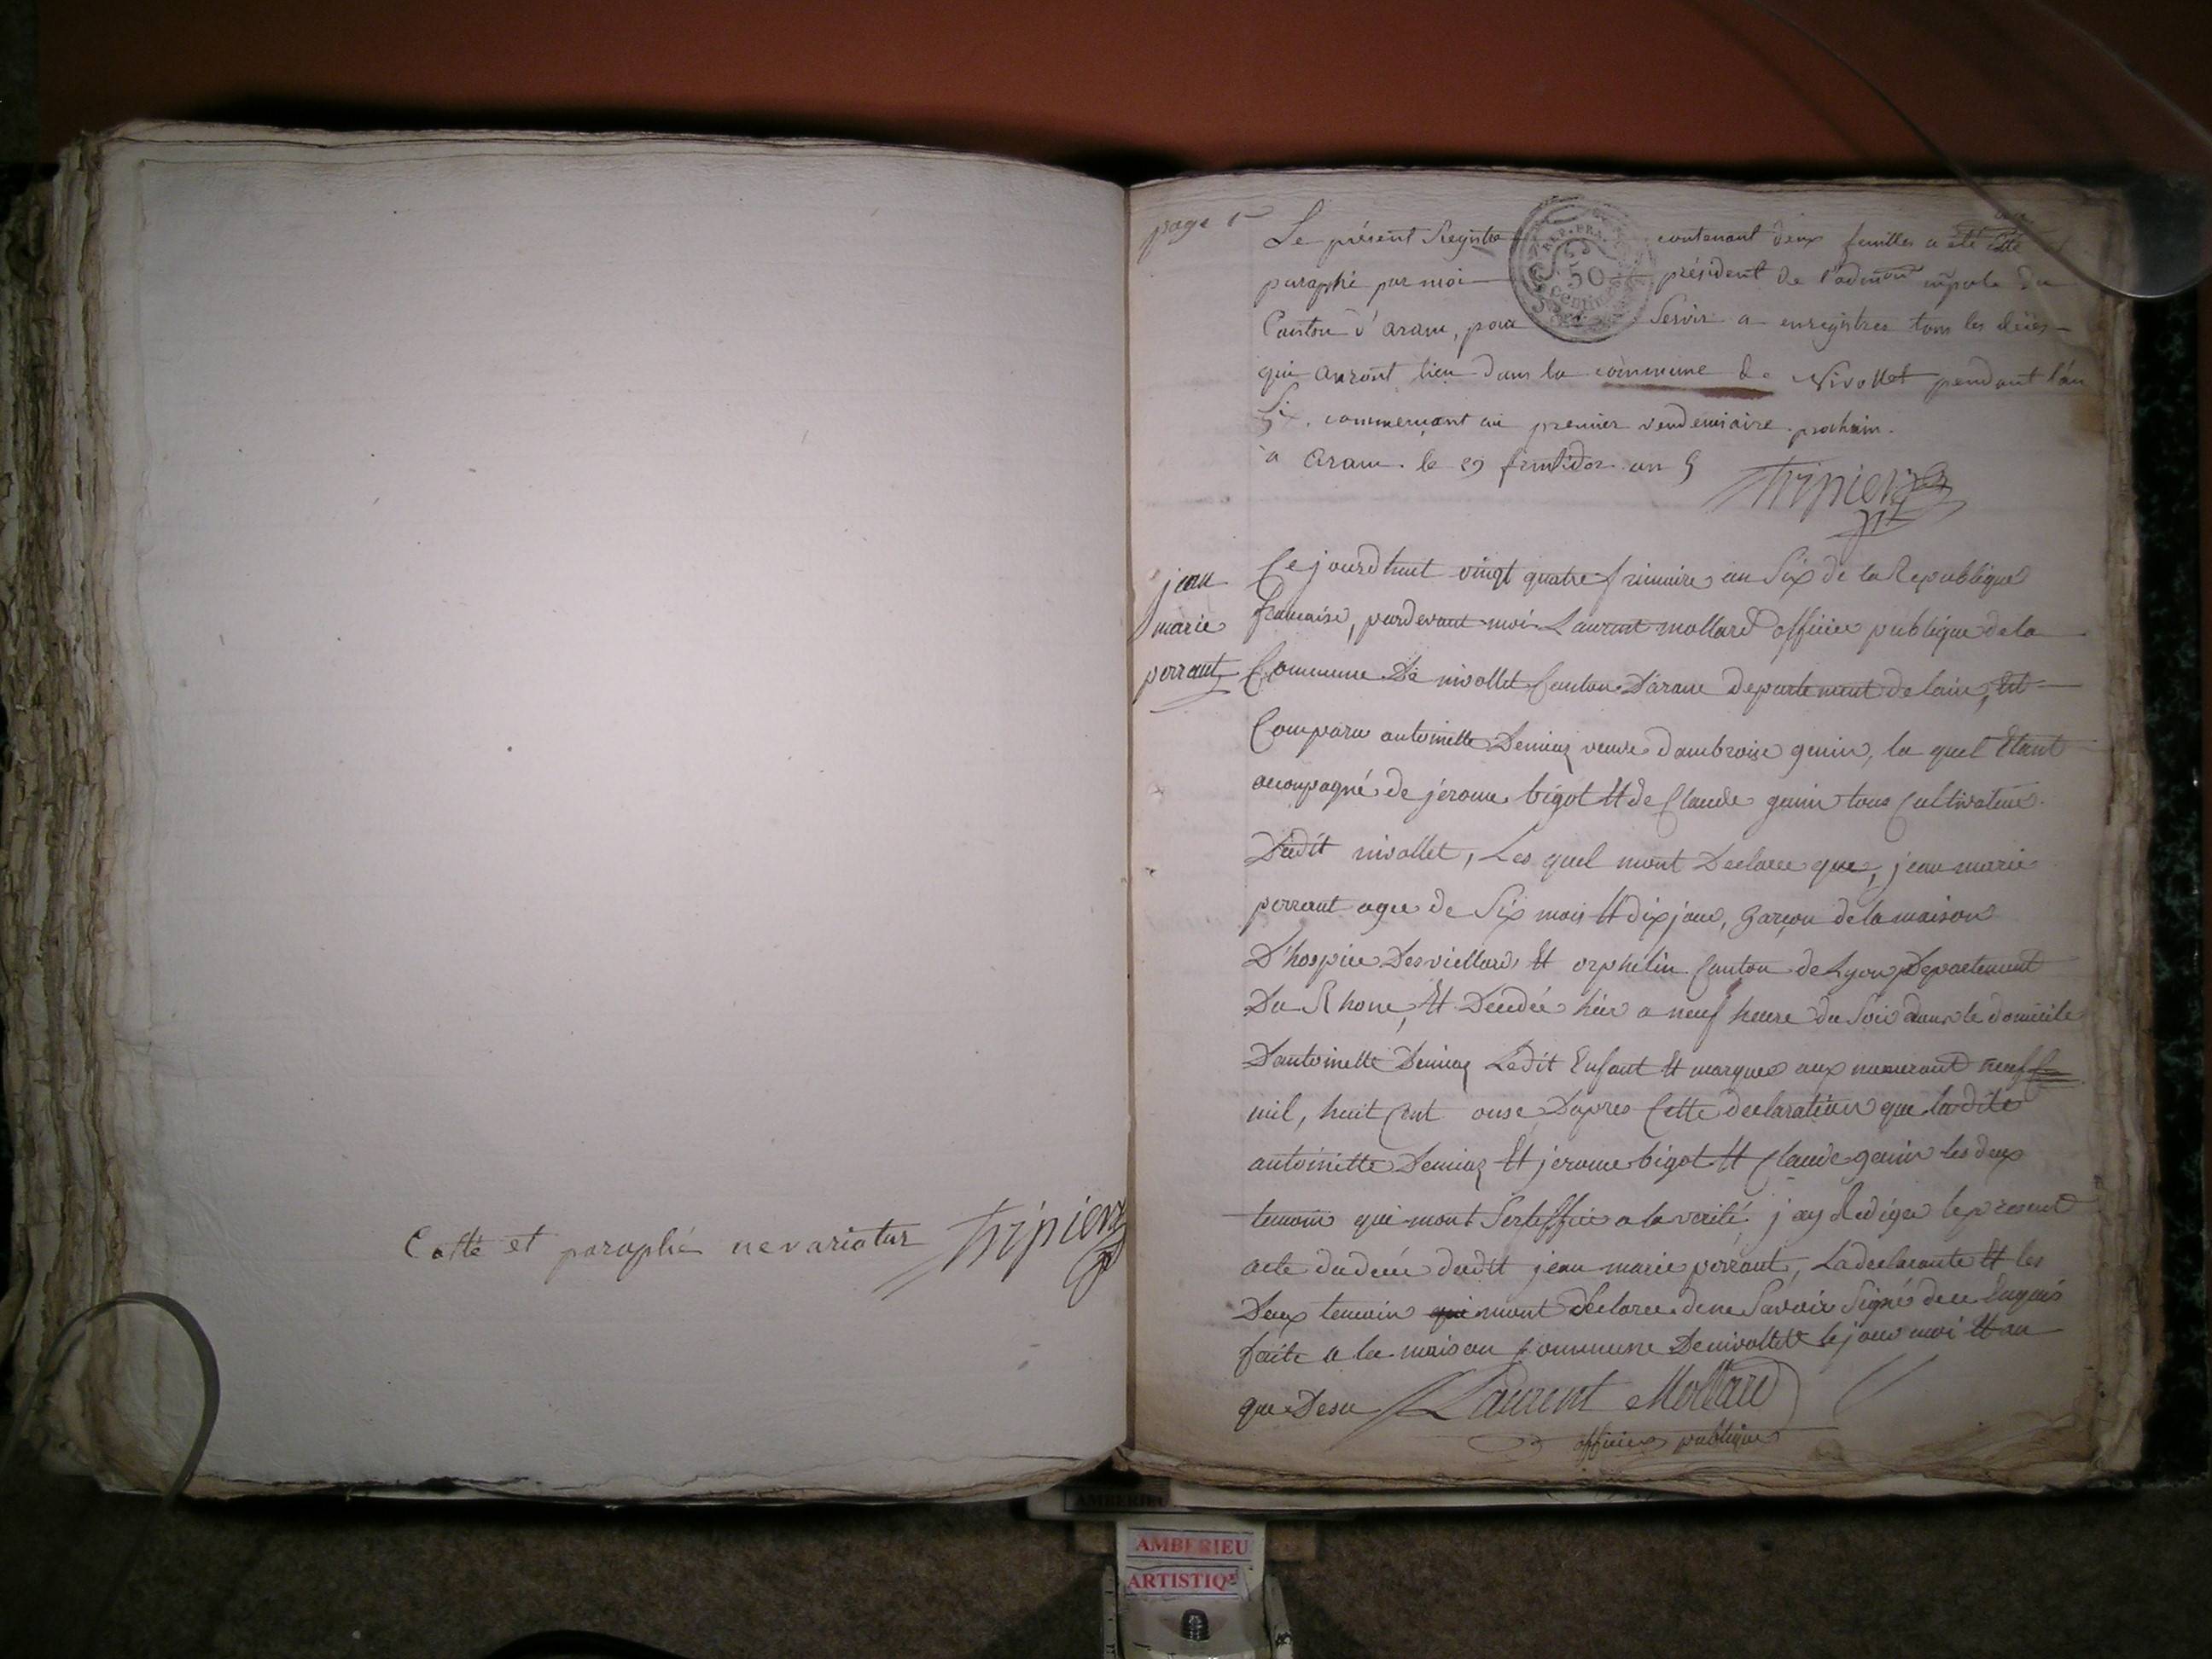 Cotté et paraphé ne variatur Tripier
page 1
Le présent Registre contenant deux feuilles a été cotté et
paraphé par moi président de l'admon mpale du
Canton d'aranc, pour Servir a enregistrer tous les décès
qui auront lieu dans la commune de Nivollet pendant l'an
Six, commencant au premier vendemiaire prochain.
à aranc le 29 fructidor an 5
Tripier
REP. FRA.
50
centimes
jean
marie
perraut
Ce jourdhuit vingt quatre frimaire an Six de la Republique
francaise, pardevant moi Laurent mollard officier publique de la
Commune De nivollet Canton Daranc departement de lain, Est
Comparu antoinette Demiaz veuve dambroise genin, la quel Etant
acompagné de jerome bigot Et de Claude genin tous Cultivateur
Dudit nivollet, Les quel mont Declaree que, jean marie
perraut agee de Six mois Et dix jour, garçon de la maison
D'hospice Des viellards Et orphelin Canton de Lyon Departement
Du Rhone, Et Decedee hier a neuf heure du Soir dans le domicile
Dantoinette Demiaz Ledit Enfant Et marquee aux numeraut neuf
mil, huit Cent onse Dapres Cette declaration que la dite
antoinette Demiaz Et jerome bigot Et Claude genin les deux
temoin qui mont Serteffiee a la verité, jay Redigee le present
acte du decee dudit jean marie perraut, La declarante Et les
Deux temoin qui mont declaree de ne Savoir Signé de ce Enquis
faite a la maison Commune De nivollet le jour moi Et an
que Desu Laurent Mollard
officier publique
AMBERIEU
AMBERIEU
ARTISTIQ